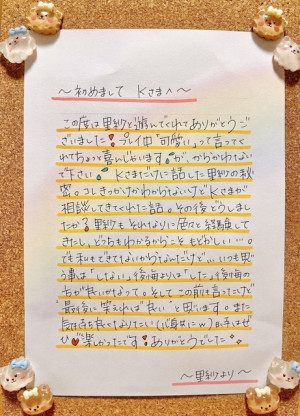 ～初めまして Kさまへ～
この度は里紗と遊んでくれてありがとうご
ざいました!プレイ中「可愛い」って言ってく
れてちょっと喜んじゃいます。が、からかわない
で下さい!Kさまだけに話した里紗の秘
密。コレきっかけかわからないけどKさまが
相談してきてくれた話。その後どうしまし
たか?里紗もそれなりに色々と経験して
きたし、どっちもわかるからこそもどかしい…。
でも私もできてないからなんだけどw…いつも思
う事は「しない」後悔よりは「した」後悔の
方が良いかなって。そして、この前も言ったけど
"最後に笑えれば良い"と思います。また
気持ち良くなりたい(心身共にw)時はぜ
ひ♥楽しかったです!ありがとうでした
～里紗より～